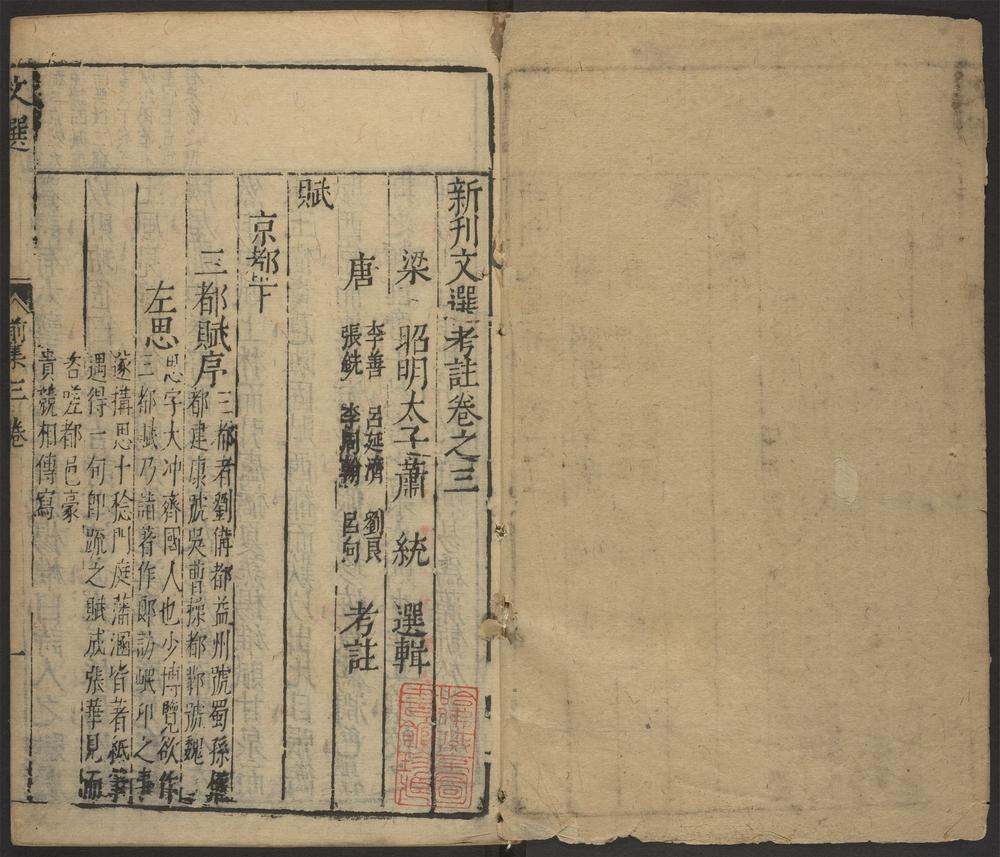 新刊文選考註卷之三
梁 昭明太子蕭 統 選輯
唐 李善 呂延濟 劉良 張銑 李周翰 呂向 考註
賦
京都下
三都賦序
三都者劉備都益州號蜀孫權
都建康號吳曹操都鄴號魏
左思
思字太冲齊國人也少博覽欲作
三都賦乃詣著作郎訪岷邛之事
遂搆思十稔門庭藩溷皆著紙筆
遇得一句卽疏之賦成張華見而
咨嗟都邑豪
貴競相傳寫
文選
前集三卷
一